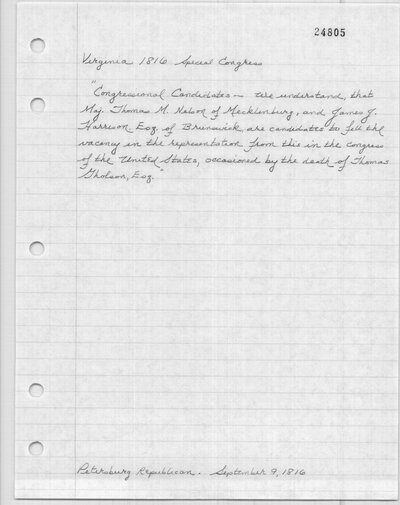 24805
Virginia 1816 Special Congress
"Congressional Candidates - We understand, that
Maj. Thomas M. Nelson of Mecklenburg, and James J.
Harrison Esq. of Brunswick are candidates to fill the
vacancy in the representation from this in the congress
of the United States, occasioned by the death of Thomas
Gholson, Esq."
Petersburg Republican. September 9, 1816